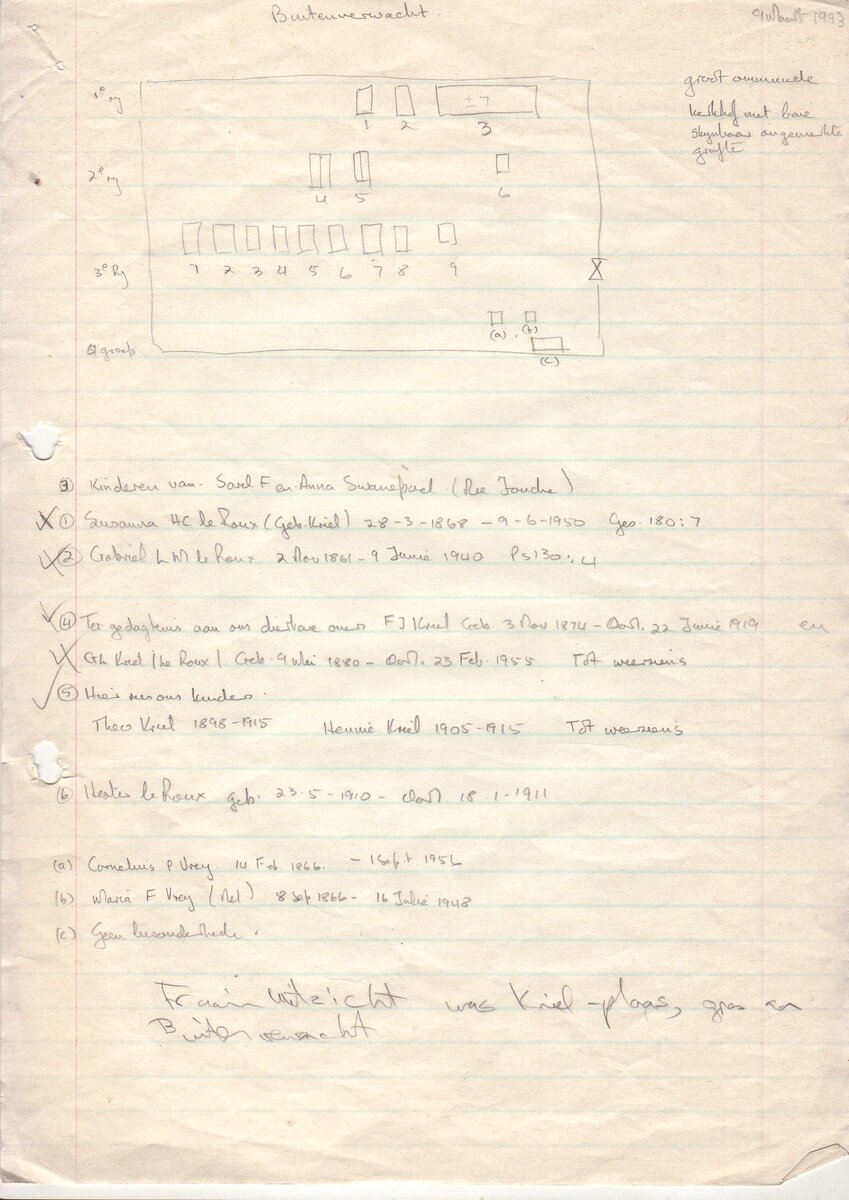 Buitenverwacht.
9 Maart 1993
groot ommuurde
kerkhof met baie
skynbaar ongemerkte
grafte
1e ry
± 7
1 2 3
2e ry
4 5 6
3e Ry
1 2 3 4 5 6 7 8 9
groep
(a) (b)
(c)
③ Kinderen van Sarel F en Anna Swanepoel (Nee Fouche)
① Susanna HC le Roux (Geb. Kriel) 28-3-1868 - 9-6-1950 Ges. 180:7
② Gabriel L M le Roux 2 Nov 1861 - 9 Junie 1940 Ps 130:4
④ Ter gedagtenis aan ons dierbare ouers FJ Kriel Geb 3 Nov 1874 - Oorl. 22 Junie 1919 en
GL Kriel (Le Roux) Geb. 9 Mei 1880 - Oorl. 23 Feb. 1955 Tot weersiens
⑤ Hier rus ons kinders.
Theo Kriel 1898-1915 Hennie Kriel 1905-1915 Tot weersiens
⑥ Hester le Roux geb. 23-5-1910 - Oorl 18-1-1911
(a) Cornelius P Vrey. 14 Feb. 1866. - 1 Sept
(b) Maria F Vrey (Nel) 8 Sep 1866 - 16 Julie 1948
(c) Geen besonderhede.
Fraai Uitzicht was Kriel-plaas,
Buitenverwacht